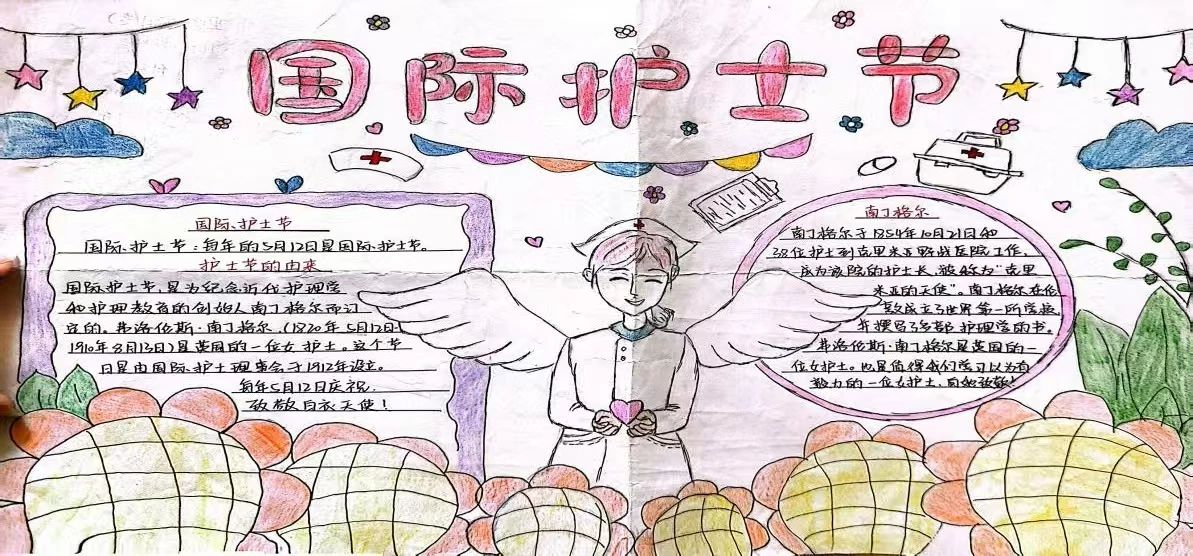 国际护士节
国际护士节
国际护士节：每年的5月12日是国际护士节。
护士节的由来
国际护士节，是为纪念近代护理学
和护理教育的创始人南丁格尔而订
立的。弗洛伦斯·南丁格尔，（1820年5月12日-
1910年8月13日）是英国的一位女护士。这个节
日是由国际护士理事会于1912年设立。
每年5月12日庆祝.
致敬白衣天使！
南丁格尔
南丁格尔于1854年10月21日和
38位护士到克里米亚野战医院工作，
成为该院的护士长，被称为“克里
米亚的天使”。南丁格尔在伦
敦成立了世界第一所学校，
并撰写了多部护理学的书。
弗洛伦斯·南丁格尔是英国的一
位女护士。也是值得我们学习以为有
毅力的一位女护士，向她致敬！